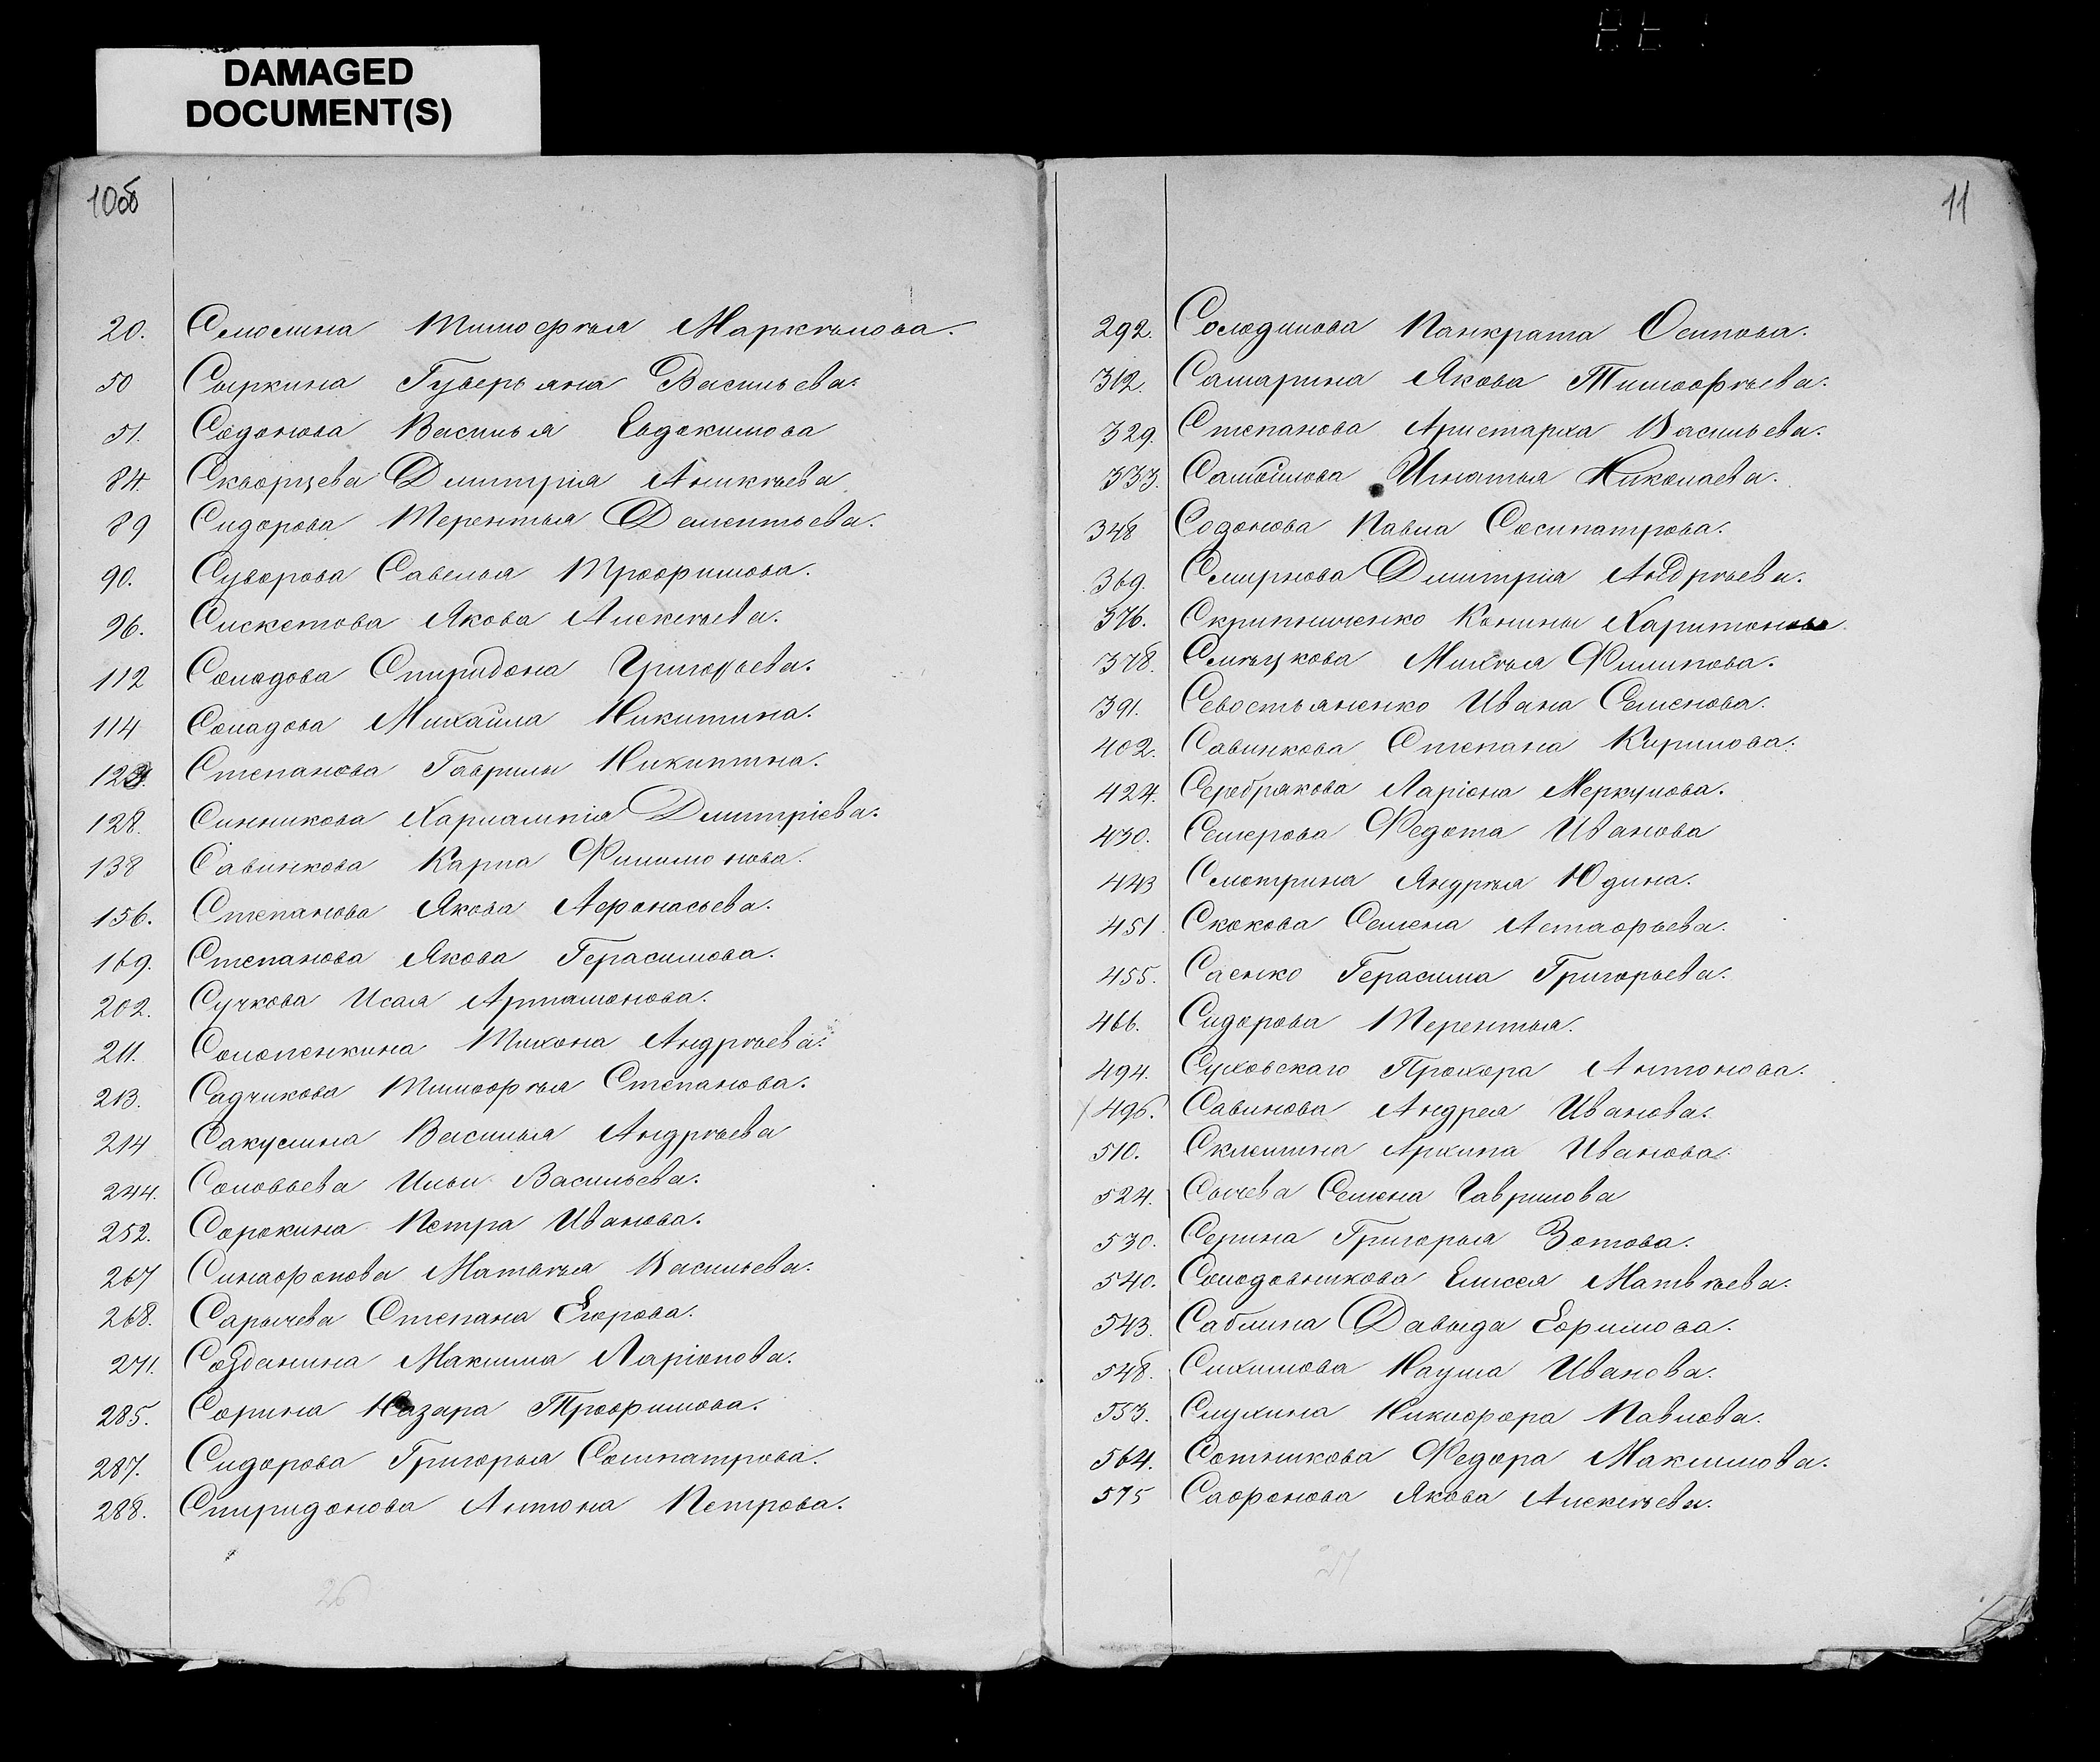 DAMAGED
DOCUMENT(S)
10об
20. Смолина Тимофѣя Маркѣлова.
50 Сыркина Гуверьяна Васильева.
51. Содонова Василья Евдокимова
84. Скворцева Дмитрія Аникѣева
89 Сидорова Терентья Дементьева.
90. Суворова Савелья Трофимова.
96. Сискетова Якова Алексѣева.
112 Солодова Спиридона Григорьева.
114 Соладова Михайла Никитина.
123. Степанова Гаврилы Никитина.
128. Синникова Харлампія Дмитріева.
138 Савинкова Карпа Филимонова.
156. Степанова Якова Афонасьева.
169. Степанова Якова Герасимова.
202. Сучкова Исая Артамонова.
211. Солопенкина Тихона Андрѣева.
213. Садчикова Тимофѣя Степанова.
214 Сакулина Василья Андрѣева
244. Соловьева Ильи Васильева.
252. Сорокина Петра Иванова.
267 Синафонова Матвѣя Васильева.
268. Сарычева Степана Егорова.
271. Созданина Максима Ларіонова.
285. Сорина Назара Трофимова.
287. Сидорова Григорья Сосипатрова.
288. Спиридонова Антона Петрова.
26
11
292. Солодилова Панкрата Осипова.
312. Самарина Якова Тимофѣева.
329. Степанова Аристарха Васильева.
333. Самойлова Игнатья Николаева.
348 Содонова Павла Сосипатрова.
369. Смирнова Дмитрія Андрѣева.
376. Скрипниченко Конины Харитонова
378. Смѣцкова Михѣя Филипова.
391. Севостьяненко Ивана Семенова.
402. Савинкова Степана Кирилова.
424. Серебрякова Ларіона Меркулова.
430. Семерова Федота Иванова
443 Смотрина Яндрѣя Юдина.
451. Скокова Семена Астафьева.
455. Саенко Герасима Григорьева.
466. Сидорова Терентья.
494. Суховскаго Прохора Антонова.
496. Савинова Андрея Иванова.
510. Склемина Архипа Иванова.
524. Сычева Семена Гаврилова
530. Серина Григорья Зотова.
540. Солодовникова Елисея Матвѣева.
543. Саблина Давыда Ефимова.
548. Силимова Наума Иванова.
553. Слухина Никифора Павлова.
564. Сотникова Федора Максимова.
575 Сафонова Якова Алексѣева.
27